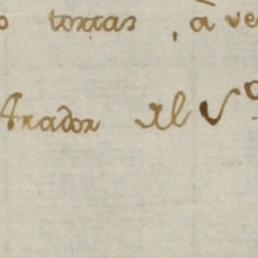 tortas, â ve
Arador el V